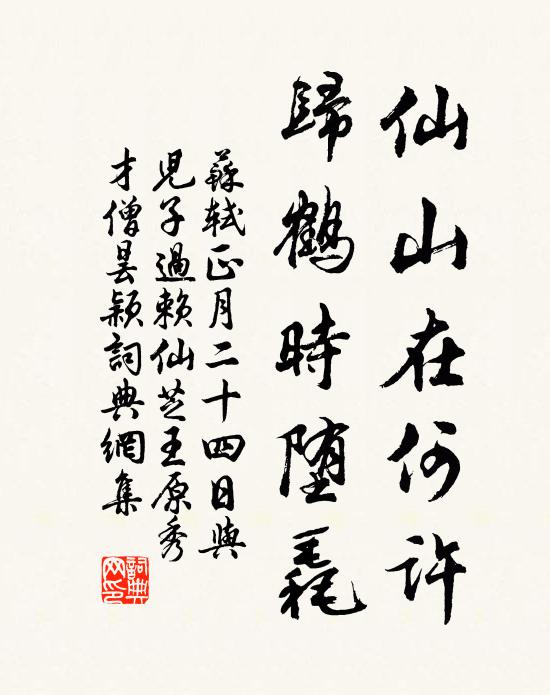 仙山在何許
歸鶴時堕毳
蘇軾正月二十四日與
兒子過賴仙芝王原秀
才僧曇穎詞典網集
詞典网印